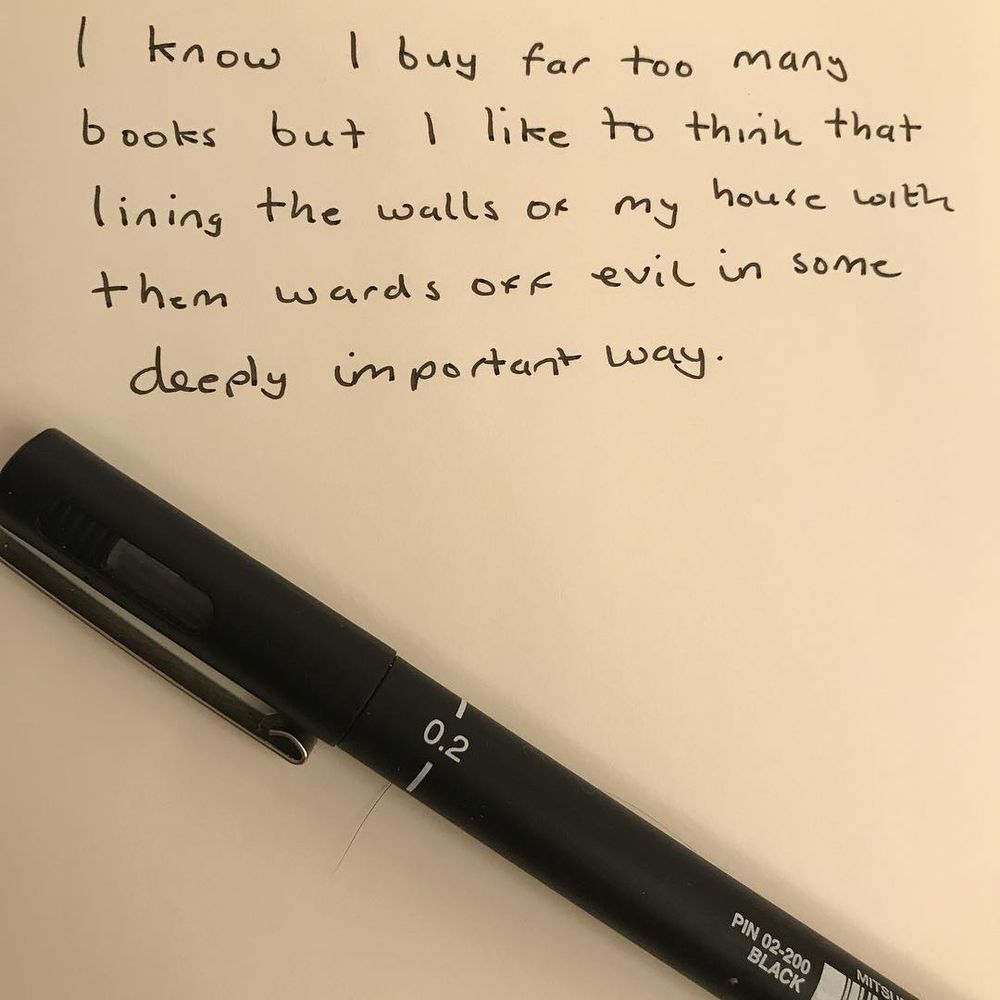 I know I buy far too many
books but I like to think that
lining the walls of my house with
them wards off evil in some
deeply important way.
0.2
PIN 02-200
BLACK